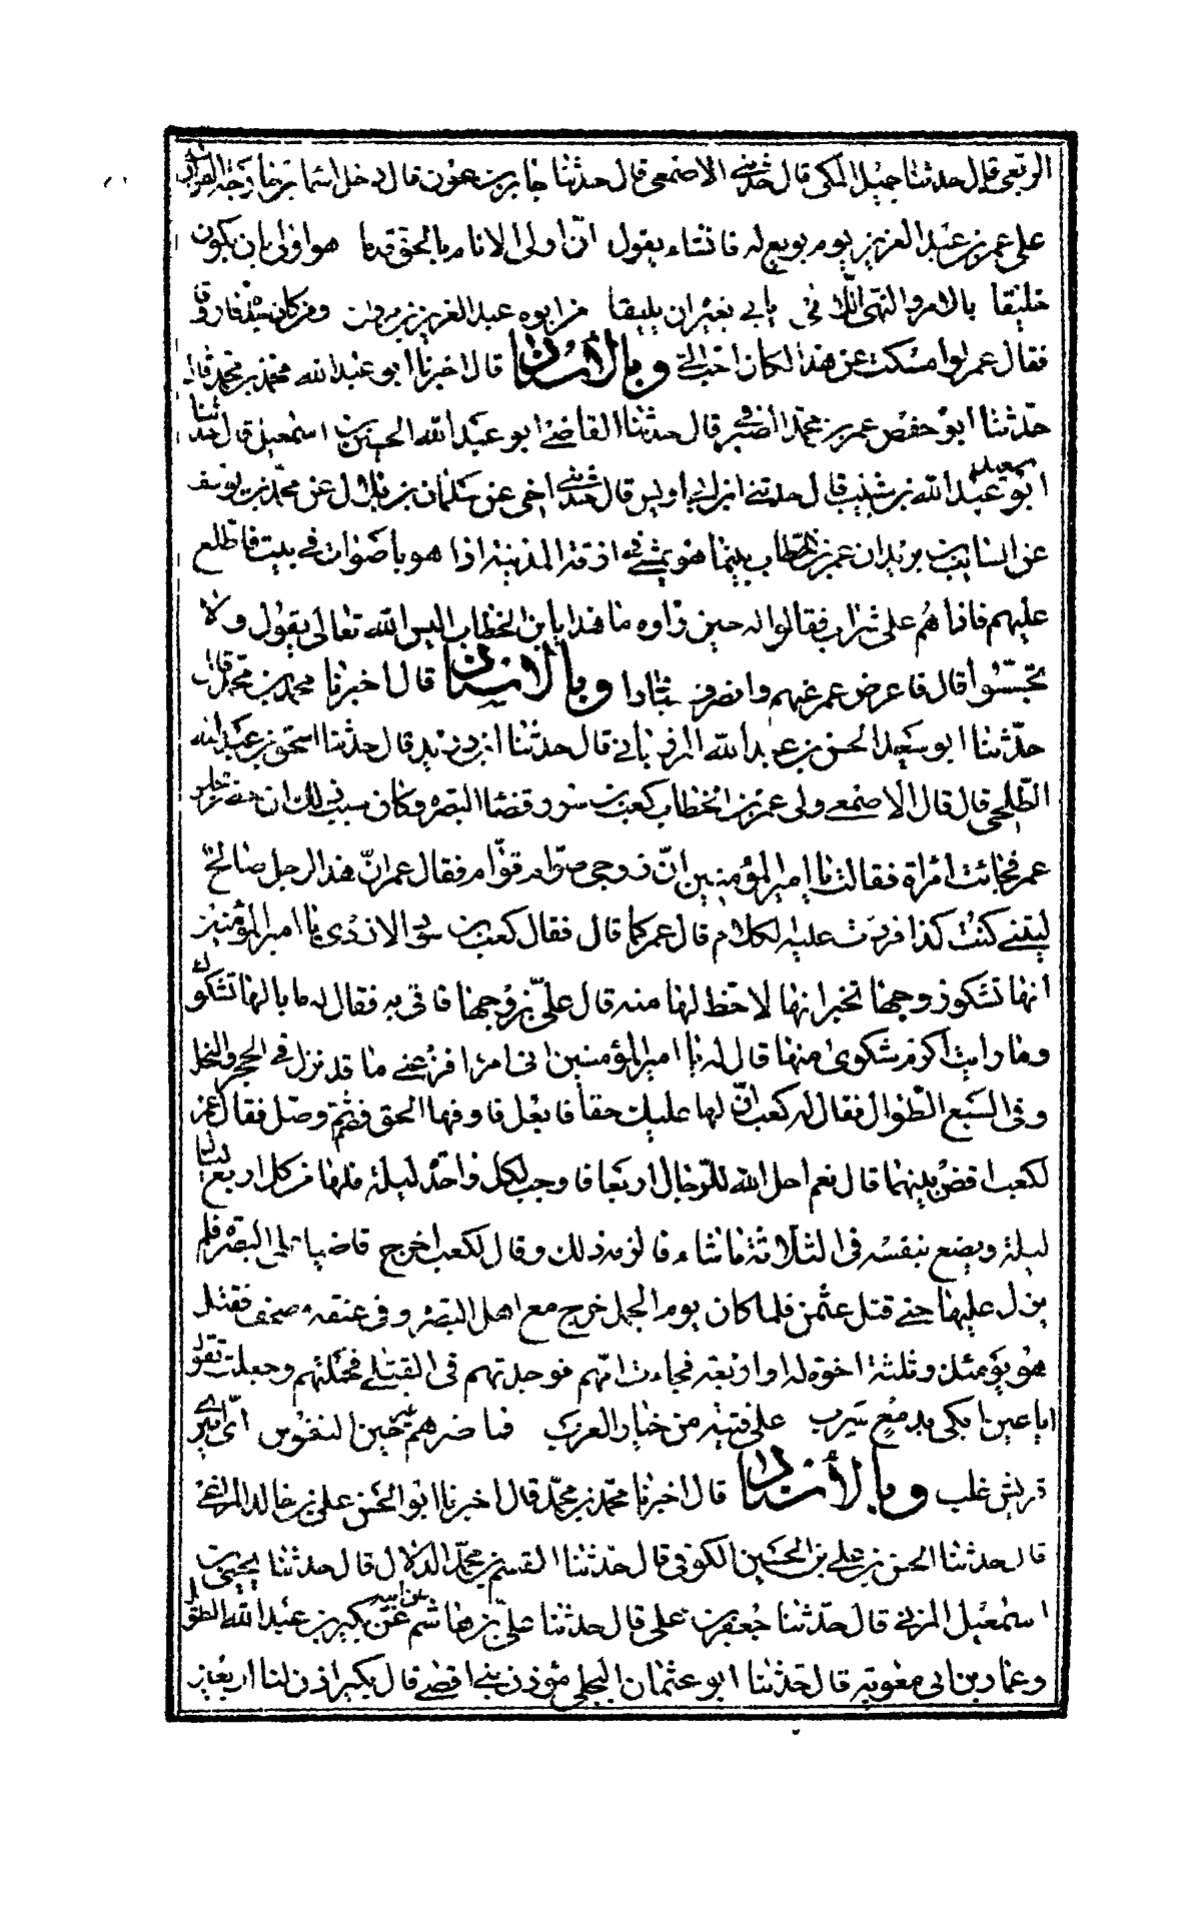 الربعي قال حدثنا جميل المكي قال حدثني الاصمعي قال حدثنا جابر بن عون قال دخل اسماء بن خارجة الفزاري
على عمر بن عبد العزيز يوم بويع له فانشاء يقول ان اولى الانام بالحق قدما هو اولى بان يكون
خليقا بالامر والنهى الذي يابي بغيره ان يليقا من ابوه عبد العزيز بن مروان ومن كان جده فاروقا
فقال عمر لو امسكت عن هذا لكان احب الي وبالاسناد قال اخبرنا ابو عبد الله محمد بن محمد قال
حدثنا ابو حفص عمر بن محمد قال حدثنا القاضي ابو عبد الله الحسين بن اسمعيل قال حدثنا
ابو سعيد عبد الله بن شبيب قال حدثني ابن ابي اويس قال حدثني اخي عن سليمان بن بلال عن محمد بن يوسف
عن السايب بن يزيد ان عمر بن الخطاب بينما هو يمشي في ازقة المدينة اذا هو باصوات في بيت فاطلع
عليهم فاذا هم على شراب فقالوا له حين راوه ما هذا يابن الخطاب اليس الله تعالى يقول ولا
تجسسوا قال فاعرض عمر عنهم وانصرف وبالاسناد قال اخبرنا محمد بن محمد قال
حدثنا ابو سعيد الحسن بن عبد الله المرزباني قال حدثنا ابن دريد قال حدثنا اسحق بن عبد الله
الطلحي قال قال الاصمعي ولى عمر بن الخطاب كعب بن سور قضاء البصرة وكان سبب ذلك ان حضر مجلس
عمر فجائت امراة فقالت يا امير المؤمنين ان زوجى صوام قوام فقال عمر ان هذا الرجل صالح
ليتني كنت كذا فردت عليه الكلام قال عمر كما قال فقال كعب بن سور الازدى يا امير المؤمنين
انها تشكو زوجها تخبر انها لا حظ لها منه قال على بزوجها فاتى به فقال له ما بالها تشكوك
وما رايت اكرم شكوى منها قال له يا امير المؤمنين انى امرا افزعني ما قد نزل في الحجر والنحل
وفى السبع الطوال فقال له كعب ان لها عليك حقا يا بعل فاوفها الحق فصم وصل فقال عمر
لكعب اقض بينهما قال نعم احل الله للرجال اربعا فاوجب لكل واحدة ليلة فلها من كل اربع ليال
ليلة ويصنع بنفسه فى الثلاثة ما شاء فالزمه ذلك وقال لكعب اخرج قاضيا على البصرة فلم
يزل عليها حتى قتل عثمن فلما كان يوم الجمل خرج مع اهل البصرة وفى عنقه مصحف فقتل
هو يومئذ وثلثة اخوة له او اربعة فجاءت امهم فوجدتهم فى القتلى فحملتهم وجعلت تقول
ايا عين ابكى بدمع سرب على فتية من خيار العرب فما ضرهم غير حين النفوس اى اميرى
قريش غلب وبالاسناد قال اخبرنا محمد بن محمد قال اخبرنا ابو الحسن على بن خالد المراغي
قال حدثنا الحسن بن علي بن الحسين الكوفى قال حدثنا القسم بن محمد الدلال قال حدثنا يحيى بن
اسمعيل المزني قال حدثنا جعفر بن على قال حدثنا على بن هاشم عن ابيه عن بكير بن عبد الله الطويل
وعمار بن ابى معوية قال حدثنا ابو عثمان البجلى مؤذن بني افصى قال بكير اذن لنا اربعين